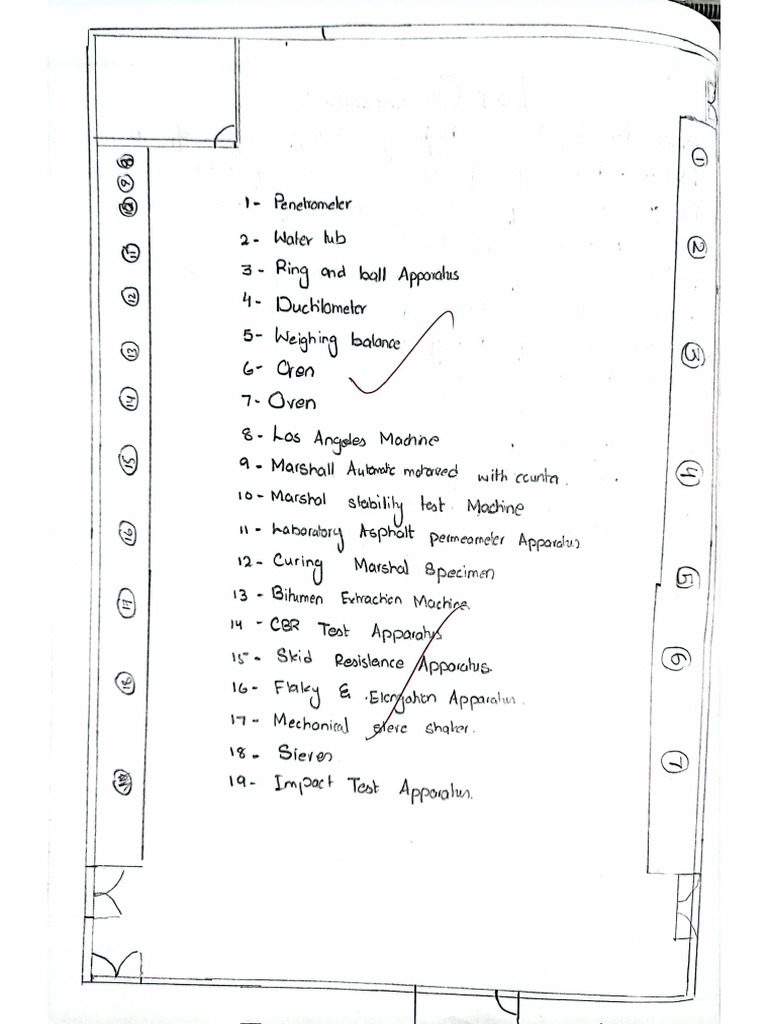 1- Penetrometer
2- Water tub
3- Ring and ball Apparatus
4- Ductilometer
5- Weighing balance
6- Oven
7- Oven
8- Los Angeles Machine
9- Marshall Automatic motorized with counter.
10- Marshal stability test Machine
11- Laboratory Asphalt permeameter Apparatus
12- Curing Marshal Specimen
13- Bitumen Extraction Machine.
14- CBR Test Apparatus
15- Skid Resistance Apparatus.
16- Flaky & Elongation Apparatus.
17- Mechanical sieve shaker.
18- Sieves
19- Impact Test Apparatus.
1
2
3
4
5
6
7
9
11
12
13
14
15
16
17
18